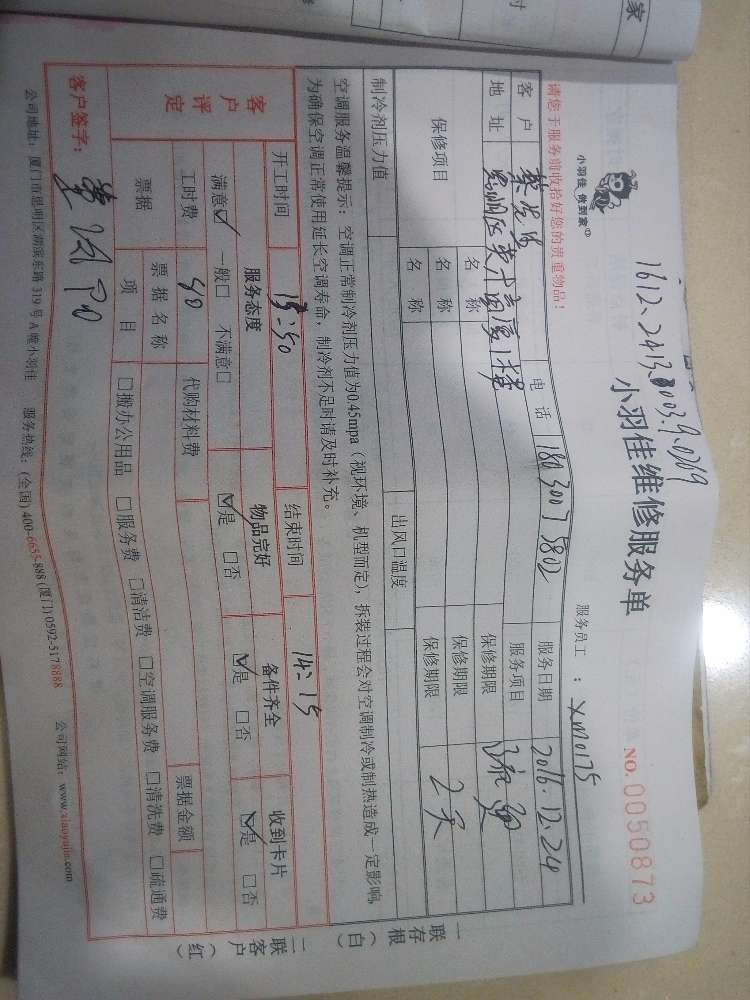 家
时
1612.2413.8003.9.0269
小羽佳 做到家
小羽佳维修服务单
服务员工 : XM0175
NO. 0050873
请您于服务前收拾好您的贵重物品!
客 户 电 话 180 3007 5802 服务日期 2016.12.24
地 址 思明区 1楼 服务项目 疏通
保修项目 名 称 保修期限
名 称 保修期限 2天
名 称 保修期限
制冷剂压力值 出风口温度
空调服务温馨提示:空调正常制冷剂压力值为0.45mpa(视环境、机型而定),拆装过程会对空调制冷或制热造成一定影响,
为确保空调正常使用延长空调寿命,制冷剂不足时请及时补充。
开工时间 13:50 结束时间 14:15
客户评定 服务态度 物品完好 备件齐全 收到卡片
满意☑ 一般□ 不满意□ ☑是 □否 ☑是 □否 ☑是 □否
工时费 90 代购材料费 票据金额
票据 票据名称
项 目 □搬办公用品 □服务费 □清洁费 □空调服务费 □清洗费 □疏通费
客户签字:
公司地址:厦门市思明区湖滨东路319号A幢小羽佳 服务热线:(全国) 400-6655-888 (厦门) 0592-5178888 公司网站:www.xiaoyujia.com
一联存根(白)
二联客户(红)